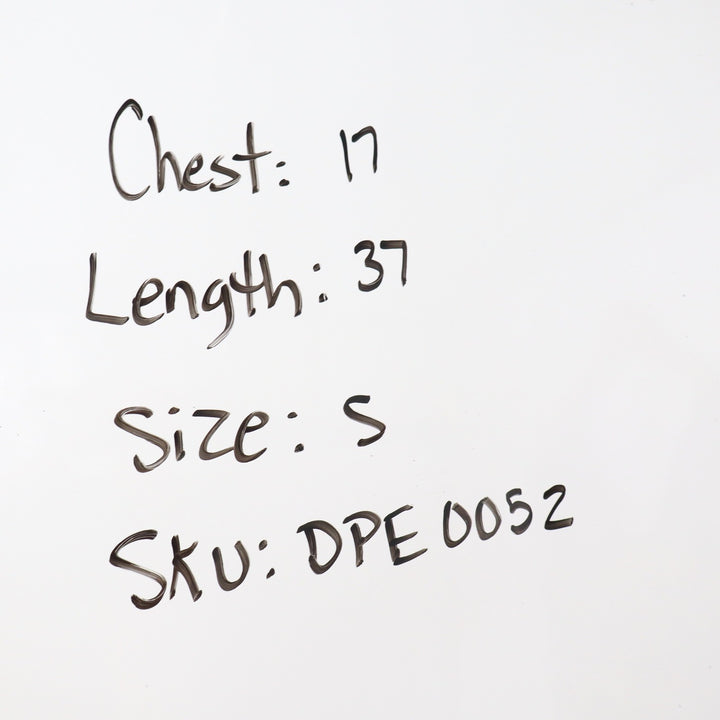 Chest: 17
Length: 37
Size: S
SKU: DPE 0052